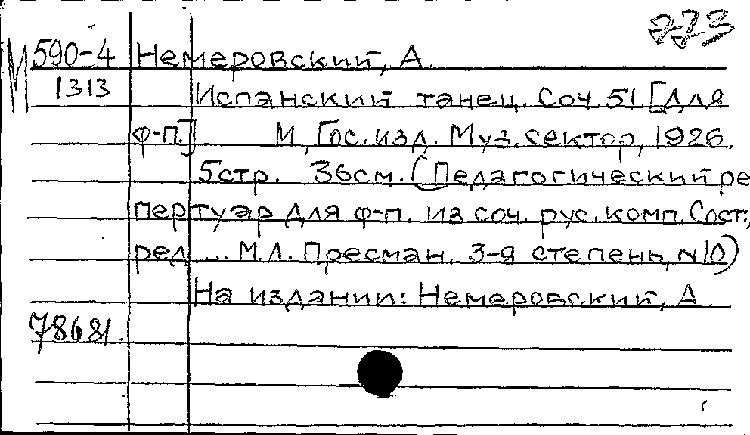 223
М 590-4 Немеровский, А.
1313 Испанский танец. Соч 51 [Для
ф-п.] М, Гос. изд. Муз. сектор, 1926.
5стр. 36см. (Педагогический ре
пертуар для ф-п. из соч. рус. комп. Сост.,
ред ... М.Л. Пресман. 3-я степень, N10)
На издании: Немеровский, А
78681.